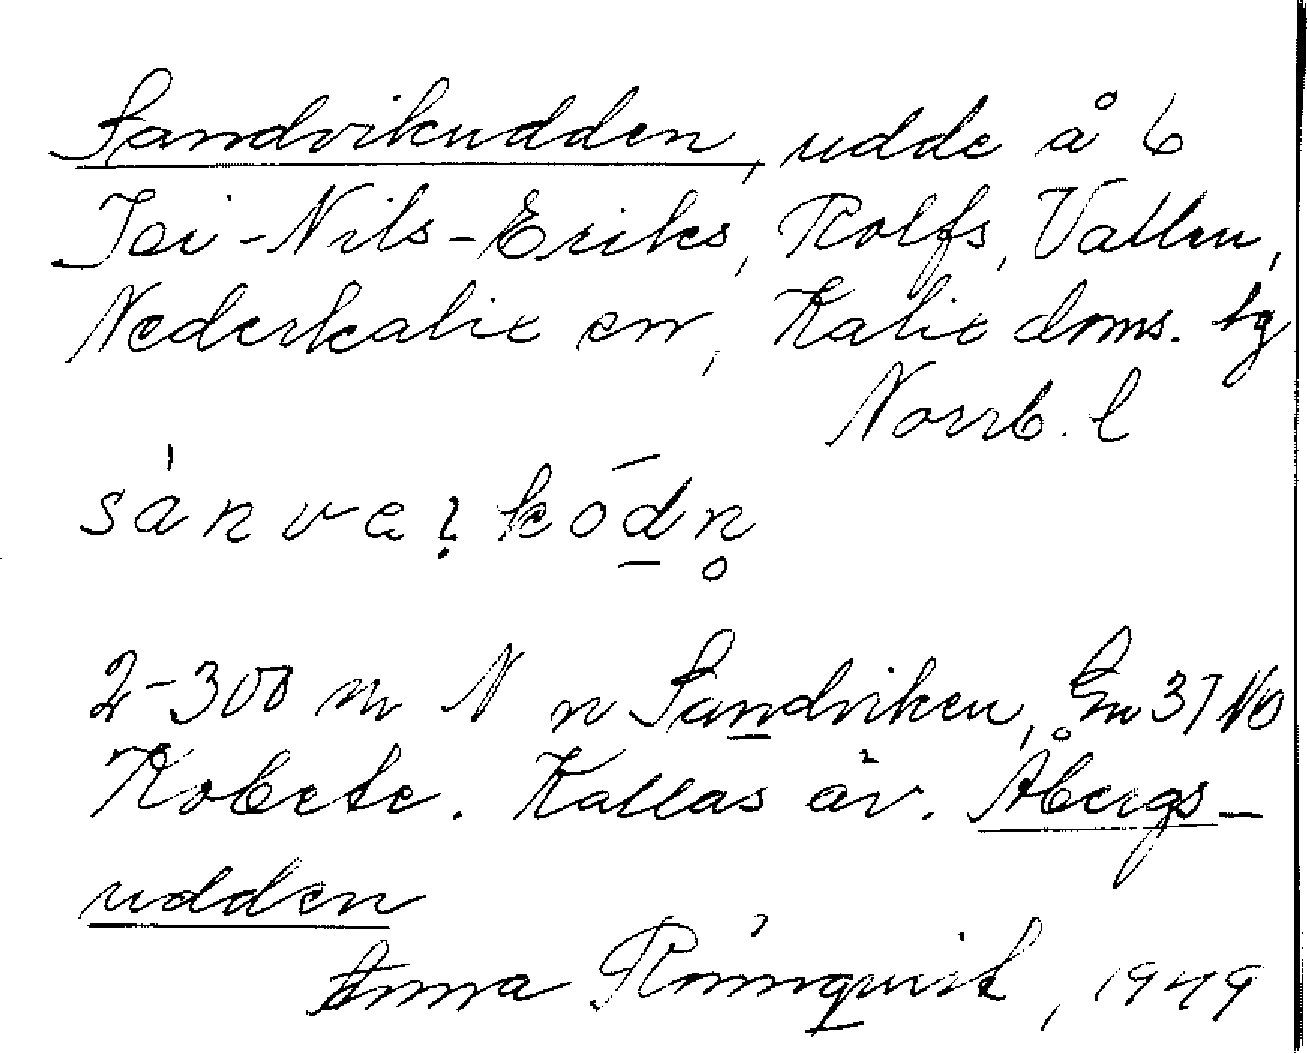 Sandvikudden, udde å 6
Joi-Nils-Eriks, Rolfs, Vallen,
Nederkalix sn, Kalix doms. tg
Norrb. l
2-300 m N n Sandviken, Gm 37 No
Kobete. Kallas äv. Åbergs-
udden
Anna Rönnqvist, 1949